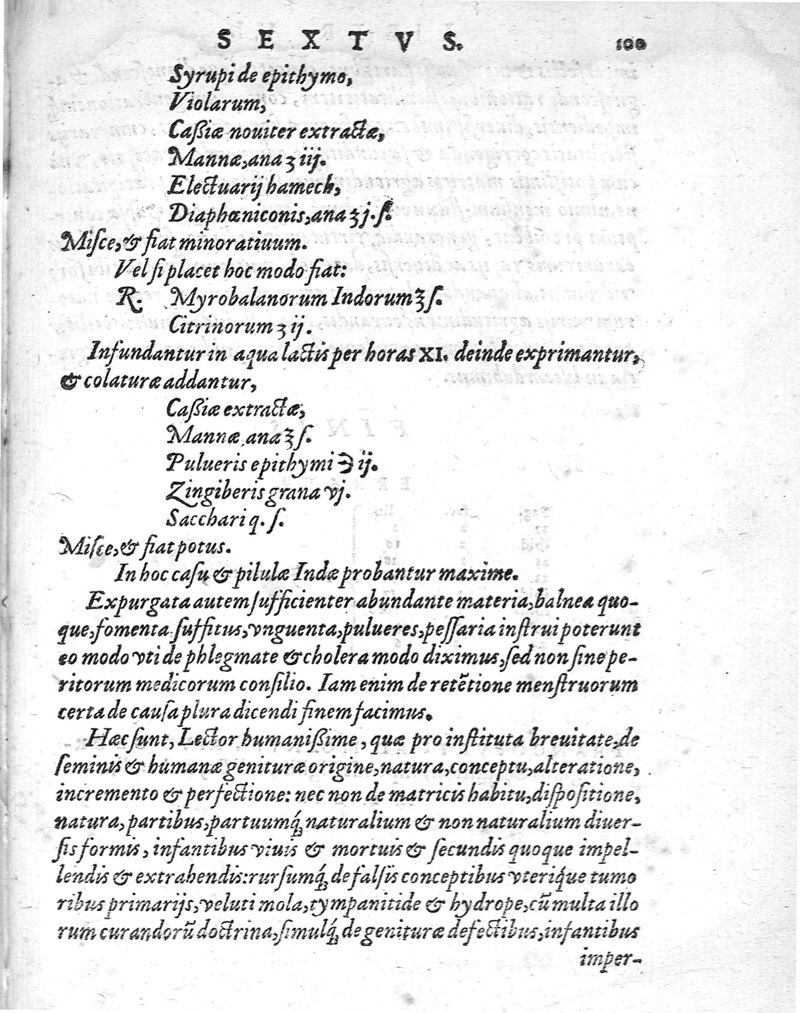 SEXTVS. 100
Syrupi de epithymo,
Violarum,
Caßiæ nouiter extractæ,
Mannæ, ana ʒ iij.
Electuarij hamech,
Diaphœniconis, ana ʒ j. ſ.
Miſce, & fiat minoratiuum.
Vel ſi placet hoc modo fiat:
R. Myrobalanorum Indorum ℥ ſ.
Citrinorum ʒ ij.
Infundantur in aqua lactis per horas XI. deinde exprimantur,
& colaturæ addantur,
Caßiæ extractæ,
Mannæ ana ℥ ſ.
Pulueris epithymi ℈ ij.
Zingiberis grana vj.
Sacchari q. ſ.
Miſce, & fiat potus.
In hoc caſu & pilulæ Indæ probantur maxime.
Expurgata autem ſufficienter abundante materia, balnea quo-
que, fomenta ſuffitus, vnguenta, pulueres, peſſaria inſtrui poterunt
eo modo vti de phlegmate & cholera modo diximus, ſed non ſine pe-
ritorum medicorum conſilio. Iam enim de retẽtione menſtruorum
certa de cauſa plura dicendi finem facimus.
Hæc ſunt, Lector humanißime, quæ pro inſtituta breuitate, de
ſeminis & humanæ genituræ origine, natura, conceptu, alteratione,
incremento & perfectione: nec non de matricis habitu, diſpoſitione,
natura, partibus, partuumq́ꝫ naturalium & non naturalium diuer-
ſis formis, infantibus viuis & mortuis & ſecundis quoque impel-
lendis & extrahendis: rurſumq́ꝫ de falſis conceptibus vteriq́ue tumo
ribus primarijs, veluti mola, tympanitide & hydrope, cũ multa illo
rum curandorũ doctrina, ſimulq́ꝫ de genituræ defectibus, infantibus
imper-